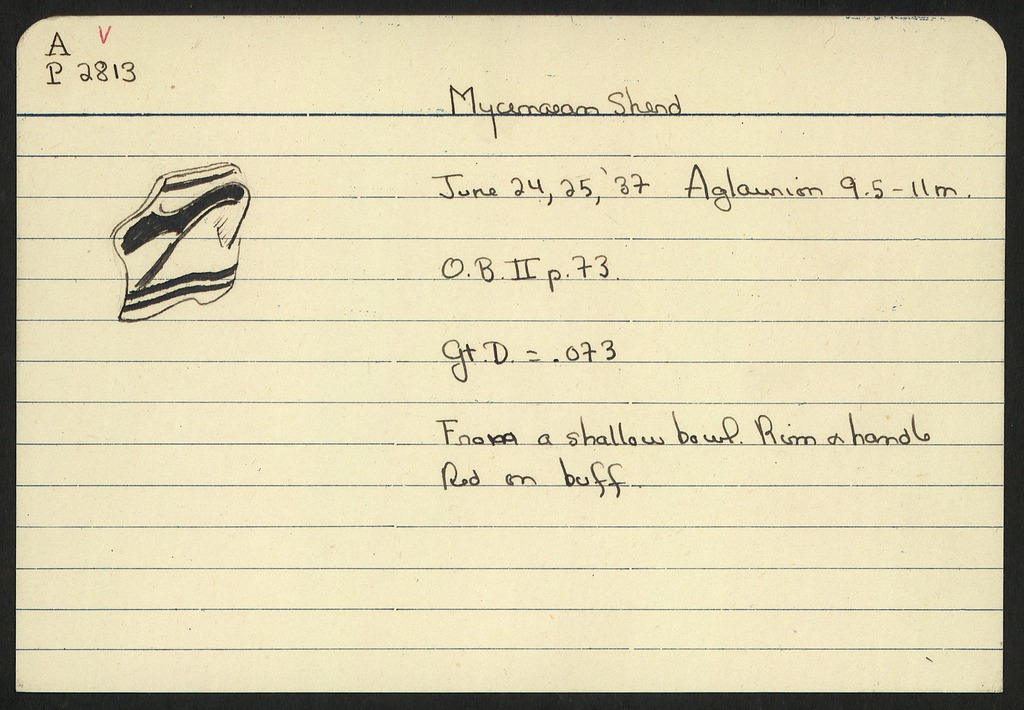 A V
P 2813
Mycenaean Sherd
June 24, 25, '37 Aglaurion 9.5-11m.
O.B. II p. 73.
Gt. D. = .073
From a shallow bowl. Rim & handle
Red on buff.